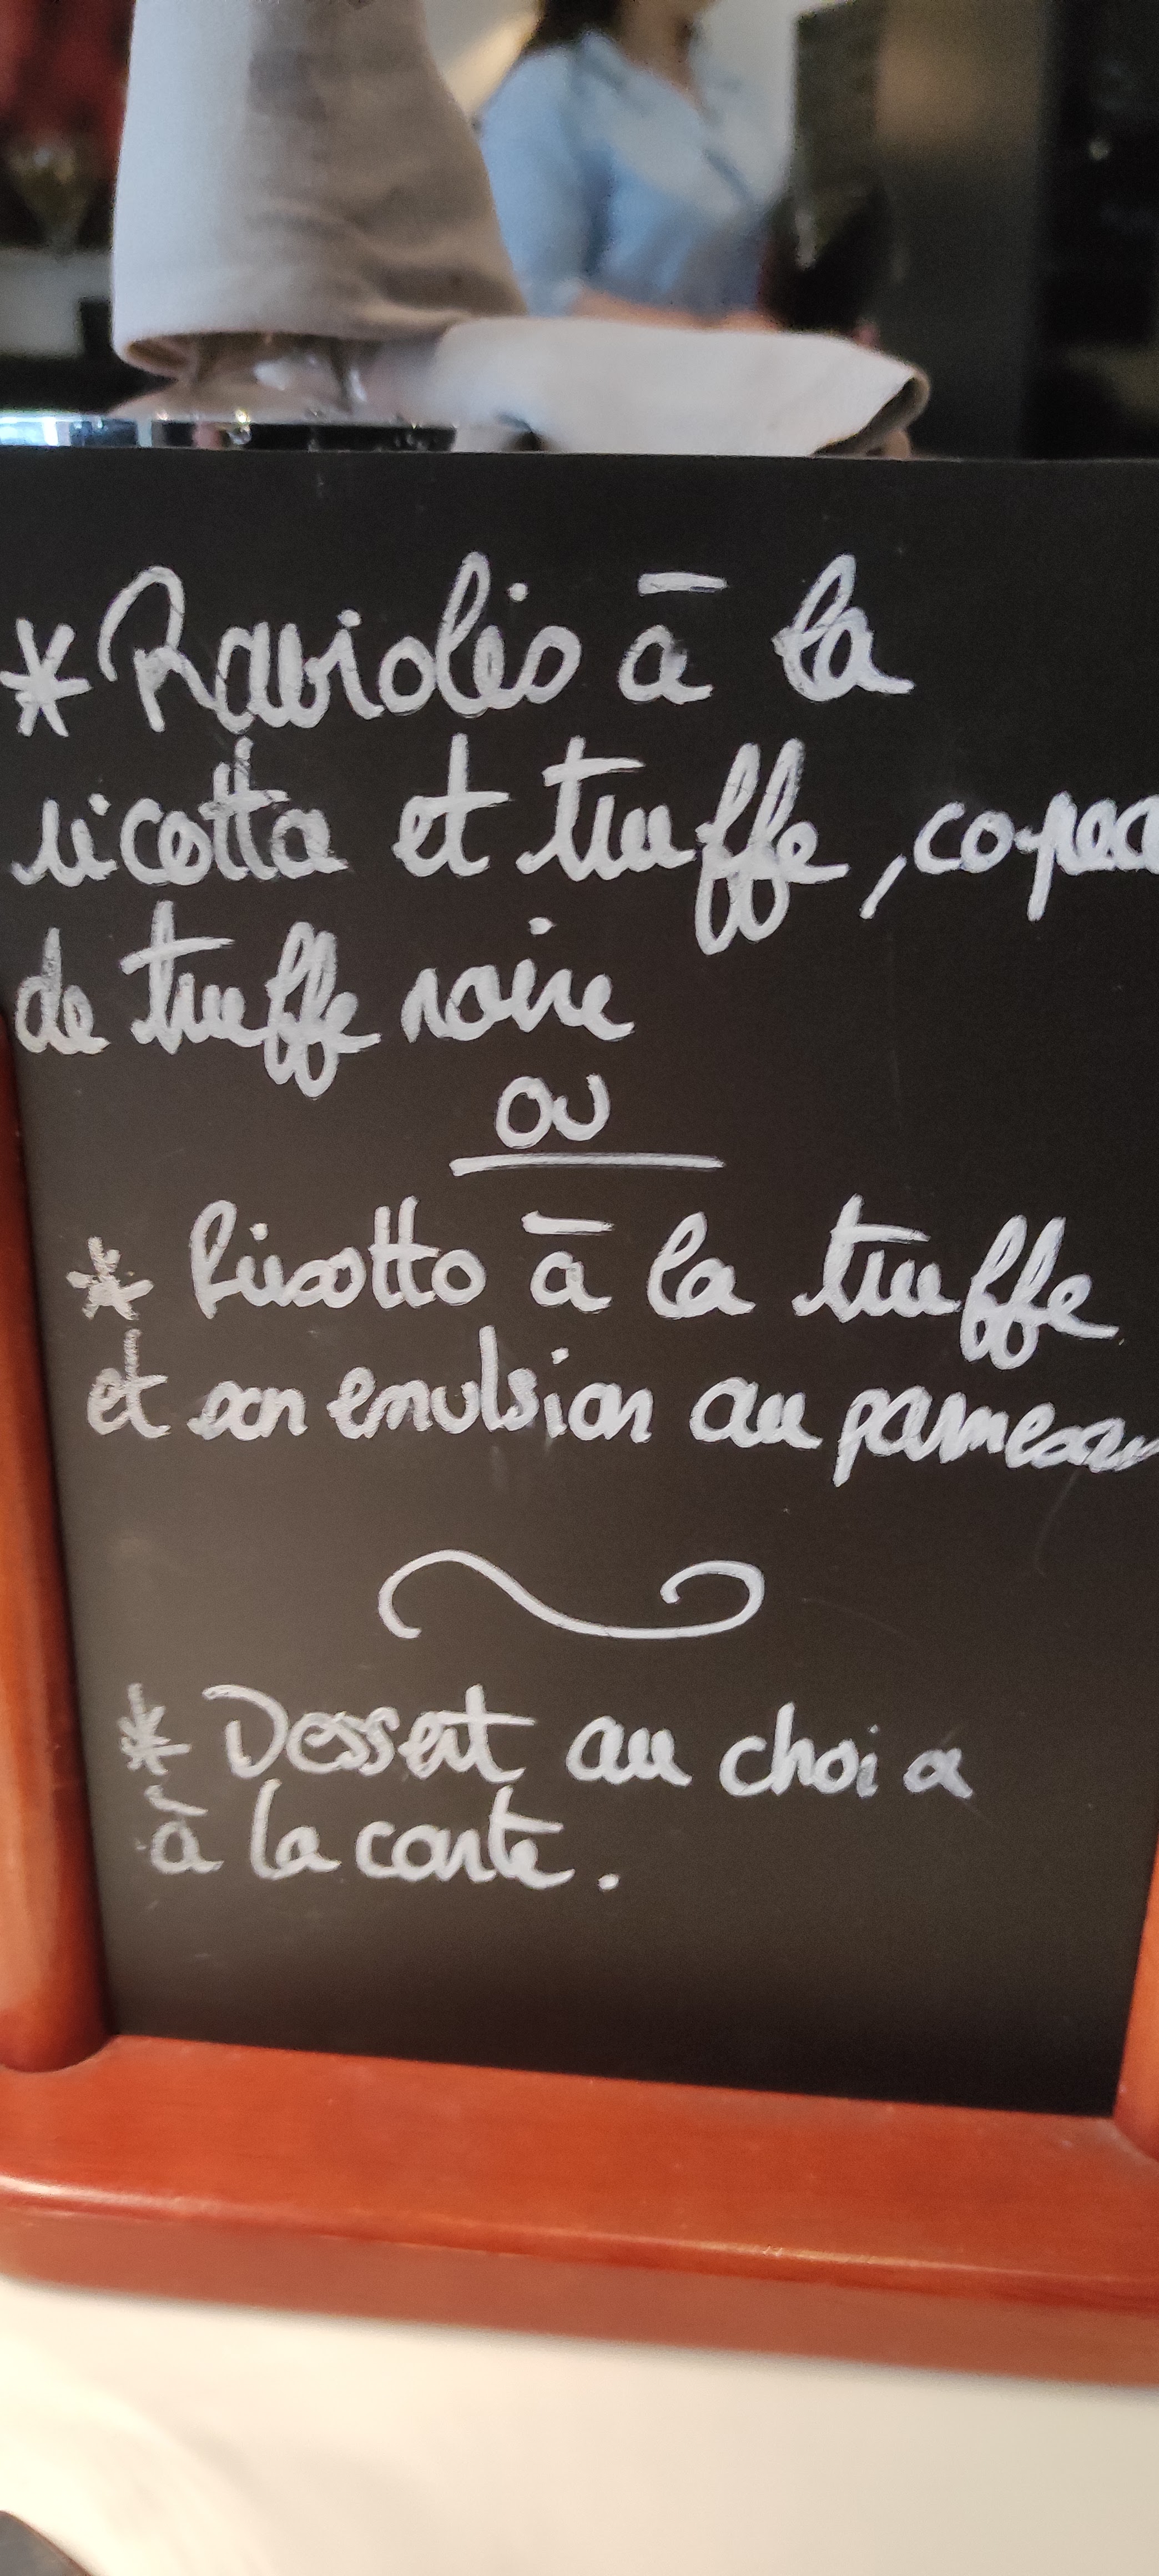 *Raviolis à la
ricotta et truffe, copea
de truffe noire
OU
* Risotto à la truffe
et son emulsion au parmesan
* Dessert au choix
à la carte.